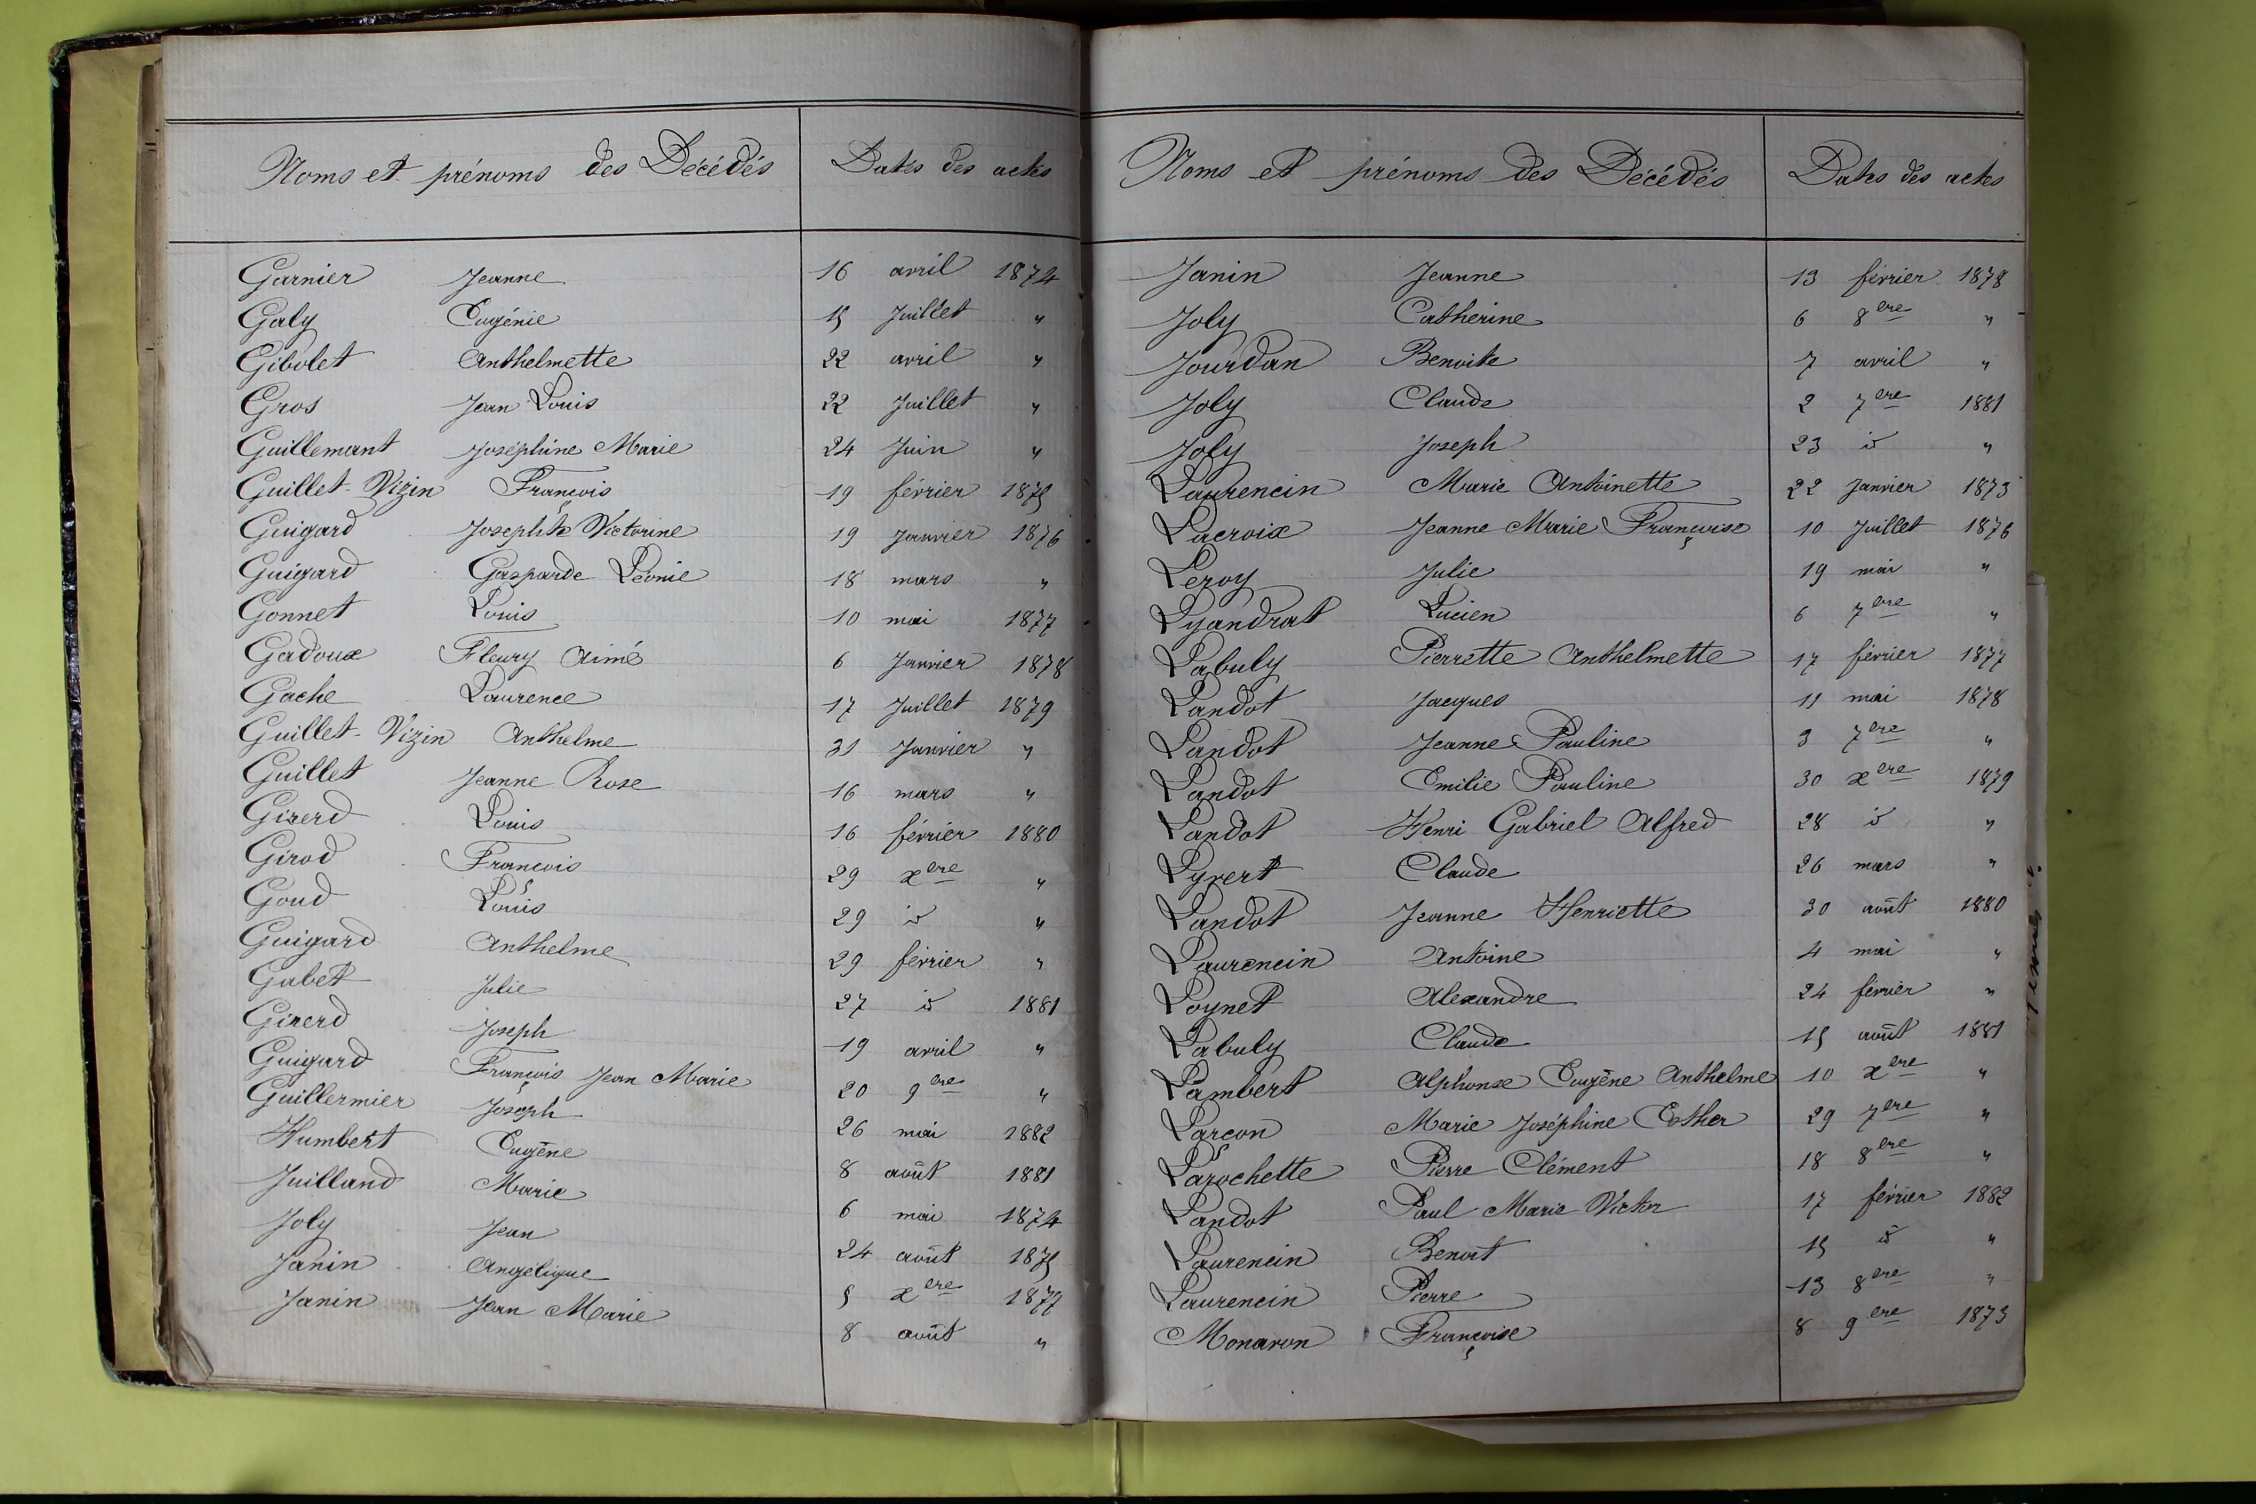 Noms et prénoms des Décédés Dates des actes
Garnier Jeanne 16 avril 1874
Galy Eugénie 15 Juillet "
Gibolet Anthelmette 22 avril "
Gros Jean Louis 22 Juillet "
Guillemant Joséphine Marie 24 Juin "
Guillet-Vizin François 19 février 1875
Guigard Josephte Victorine 19 Janvier 1876
Guigard Gasparde Léonie 18 mars "
Gonnet Louis 10 mai 1877
Gadoux Fleury Aimé 6 Janvier 1878
Gache Laurence 17 Juillet 1879
Guillet-Vizin Anthelme 31 Janvier "
Guillet Jeanne Rose 16 mars "
Girerd Louis 16 février 1880
Girod François 29 xbre "
Goud Louis 29 id "
Guigard Anthelme 29 février "
Gubet Julie 27 id 1881
Girerd Joseph 19 avril "
Guigard François Jean Marie 20 9bre "
Guillermier Joseph 26 mai 1882
Humbert Eugène 8 août 1881
Juilland Marie 6 mai 1874
Joly Jean 24 août 1875
Janin Angélique 5 xbre 1877
Janin Jean Marie 8 août "
Noms et prénoms des Décédés Dates des actes
Janin Jeanne 13 février 1878
Joly Catherine 6 8bre "
Jourdan Benoite 7 avril "
Joly Claude 2 7bre 1881
Joly Joseph 23 id "
Laurencin Marie Antoinette 22 Janvier 1873
Lacroix Jeanne Marie Françoise 10 Juillet 1876
Leroy Julie 19 mai "
Lyandrat Lucien 6 7bre "
Labuly Pierrette Anthelmette 17 février 1877
Landot Jacques 11 mai 1878
Landot Jeanne Pauline 3 7bre "
Landot Emilie Pauline 30 xbre 1879
Landot Henri Gabriel Alfred 28 id "
Lyvert Claude 26 mars "
Landot Jeanne Henriette 30 août 1880
Laurencin Antoine 4 mai "
Loynet Alexandre 24 février "
Labuly Claude 15 août 1881
Lambert Alphonse Eugène Anthelme 10 xbre "
Larçon Marie Joséphine Esther 29 7bre "
Larochette Pierre Clément 18 8bre "
Landot Paul Marie Victor 17 février 1882
Laurencin Benoit 15 id "
Laurencin Pierre 13 8bre "
Monavon Françoise 8 9bre 1873